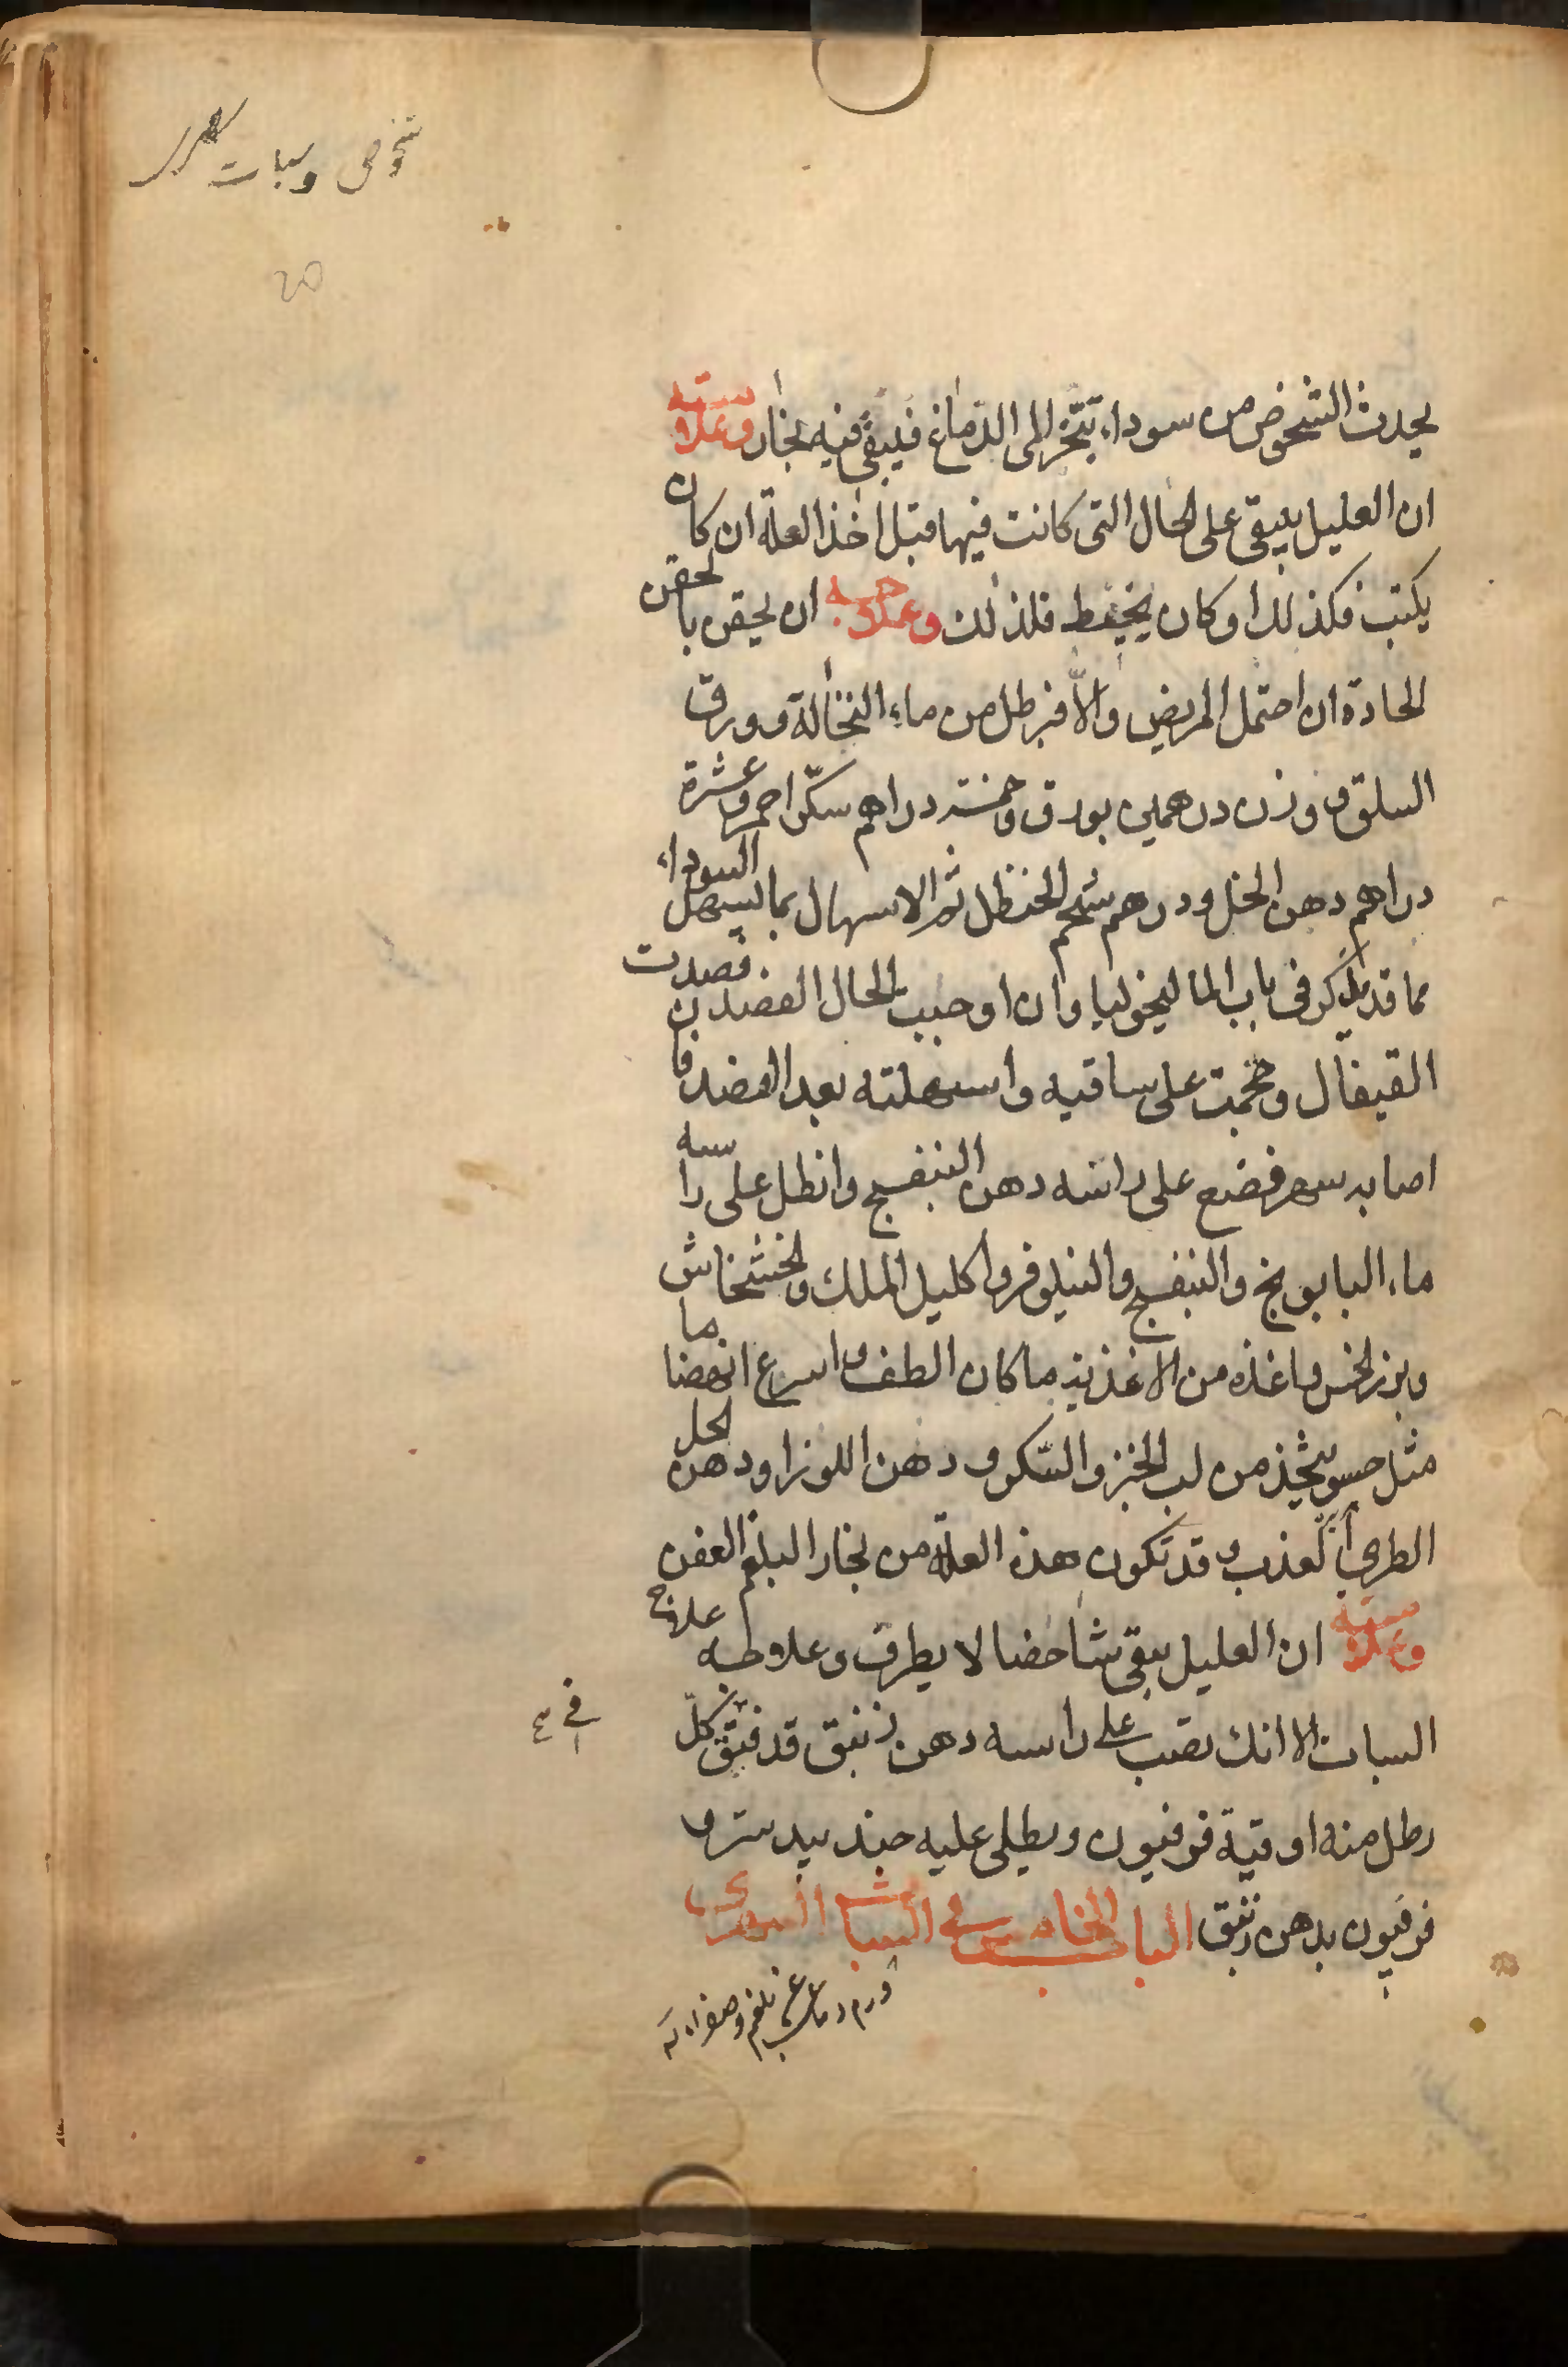 شخوص وسبات
20
يحدث الشخوص من سوداء تتبخر الى الدماغ فيبقى فيه بخار وعلامته
ان العليل يبقى على الحال التى كانت فيها قبل اخذ العلة ان كان
يكتب فكذلك او كان يخيط فلذلك وعلاجه ان يحقن بالحقن
الحادة ان احتمل المريض والا فبرطل من ماء النخالة وورق
السلق ووزن درهمين بورق وخمسة دراهم سكر احمر وعشرة
دراهم دهن الخل ودرهم شحم الحنظل ثم الاسهال بما يسهل السوداء
مما قد يذكر فى باب الماليخوليا وان اوجبت الحال الفصد فصدت
القيفال وحجمت على ساقيه واسهلته بعد الفصد فان
اصابه سهر فضع على راسه دهن البنفسج وانطل على راسه
ماء البابونج والبنفسج والنيلوفر واكليل الملك والخشخاش
وبزر الخس واغذه من الاغذية ما كان الطف واسرع انهضاما
مثل حسو يتخذ من لب الخبز والسكر ودهن اللوز او دهن الحل
الطري العذب وقد تكون هذه العلة من بخار البلغم العفن
وعلامته ان العليل يبقى شاخصا لا يطرف وعلاجه علاج
السبات الا انك تصب على راسه دهن زنبق قد فتق كل
رطل منه اوقية فرفيون ويطلى عليه جندبيدستر و
فرفيون بدهن زنبق الباب الخامس في السبات السهرى
ورم دماغى بلغم وصفراء